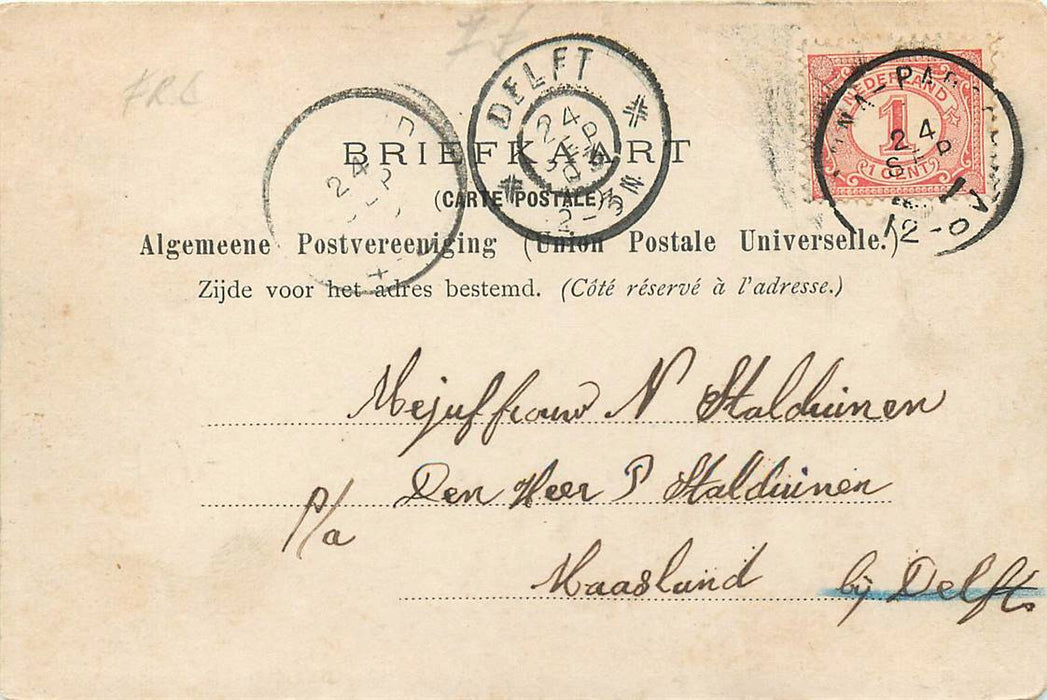 F.R.C
DELFT
24
SEP
2-3N
24
NEDERLAND
1
1 CENT
24
SEP
12-
BRIEFKAART
(CARTE POSTALE)
Algemeene Postvereeniging (Union Postale Universelle.)
Zijde voor het adres bestemd. (Côté réservé à l'adresse.)
Mejuffrouw N Stalduinen
p/a Den Heer P Stalduinen
Maasland bij Delft